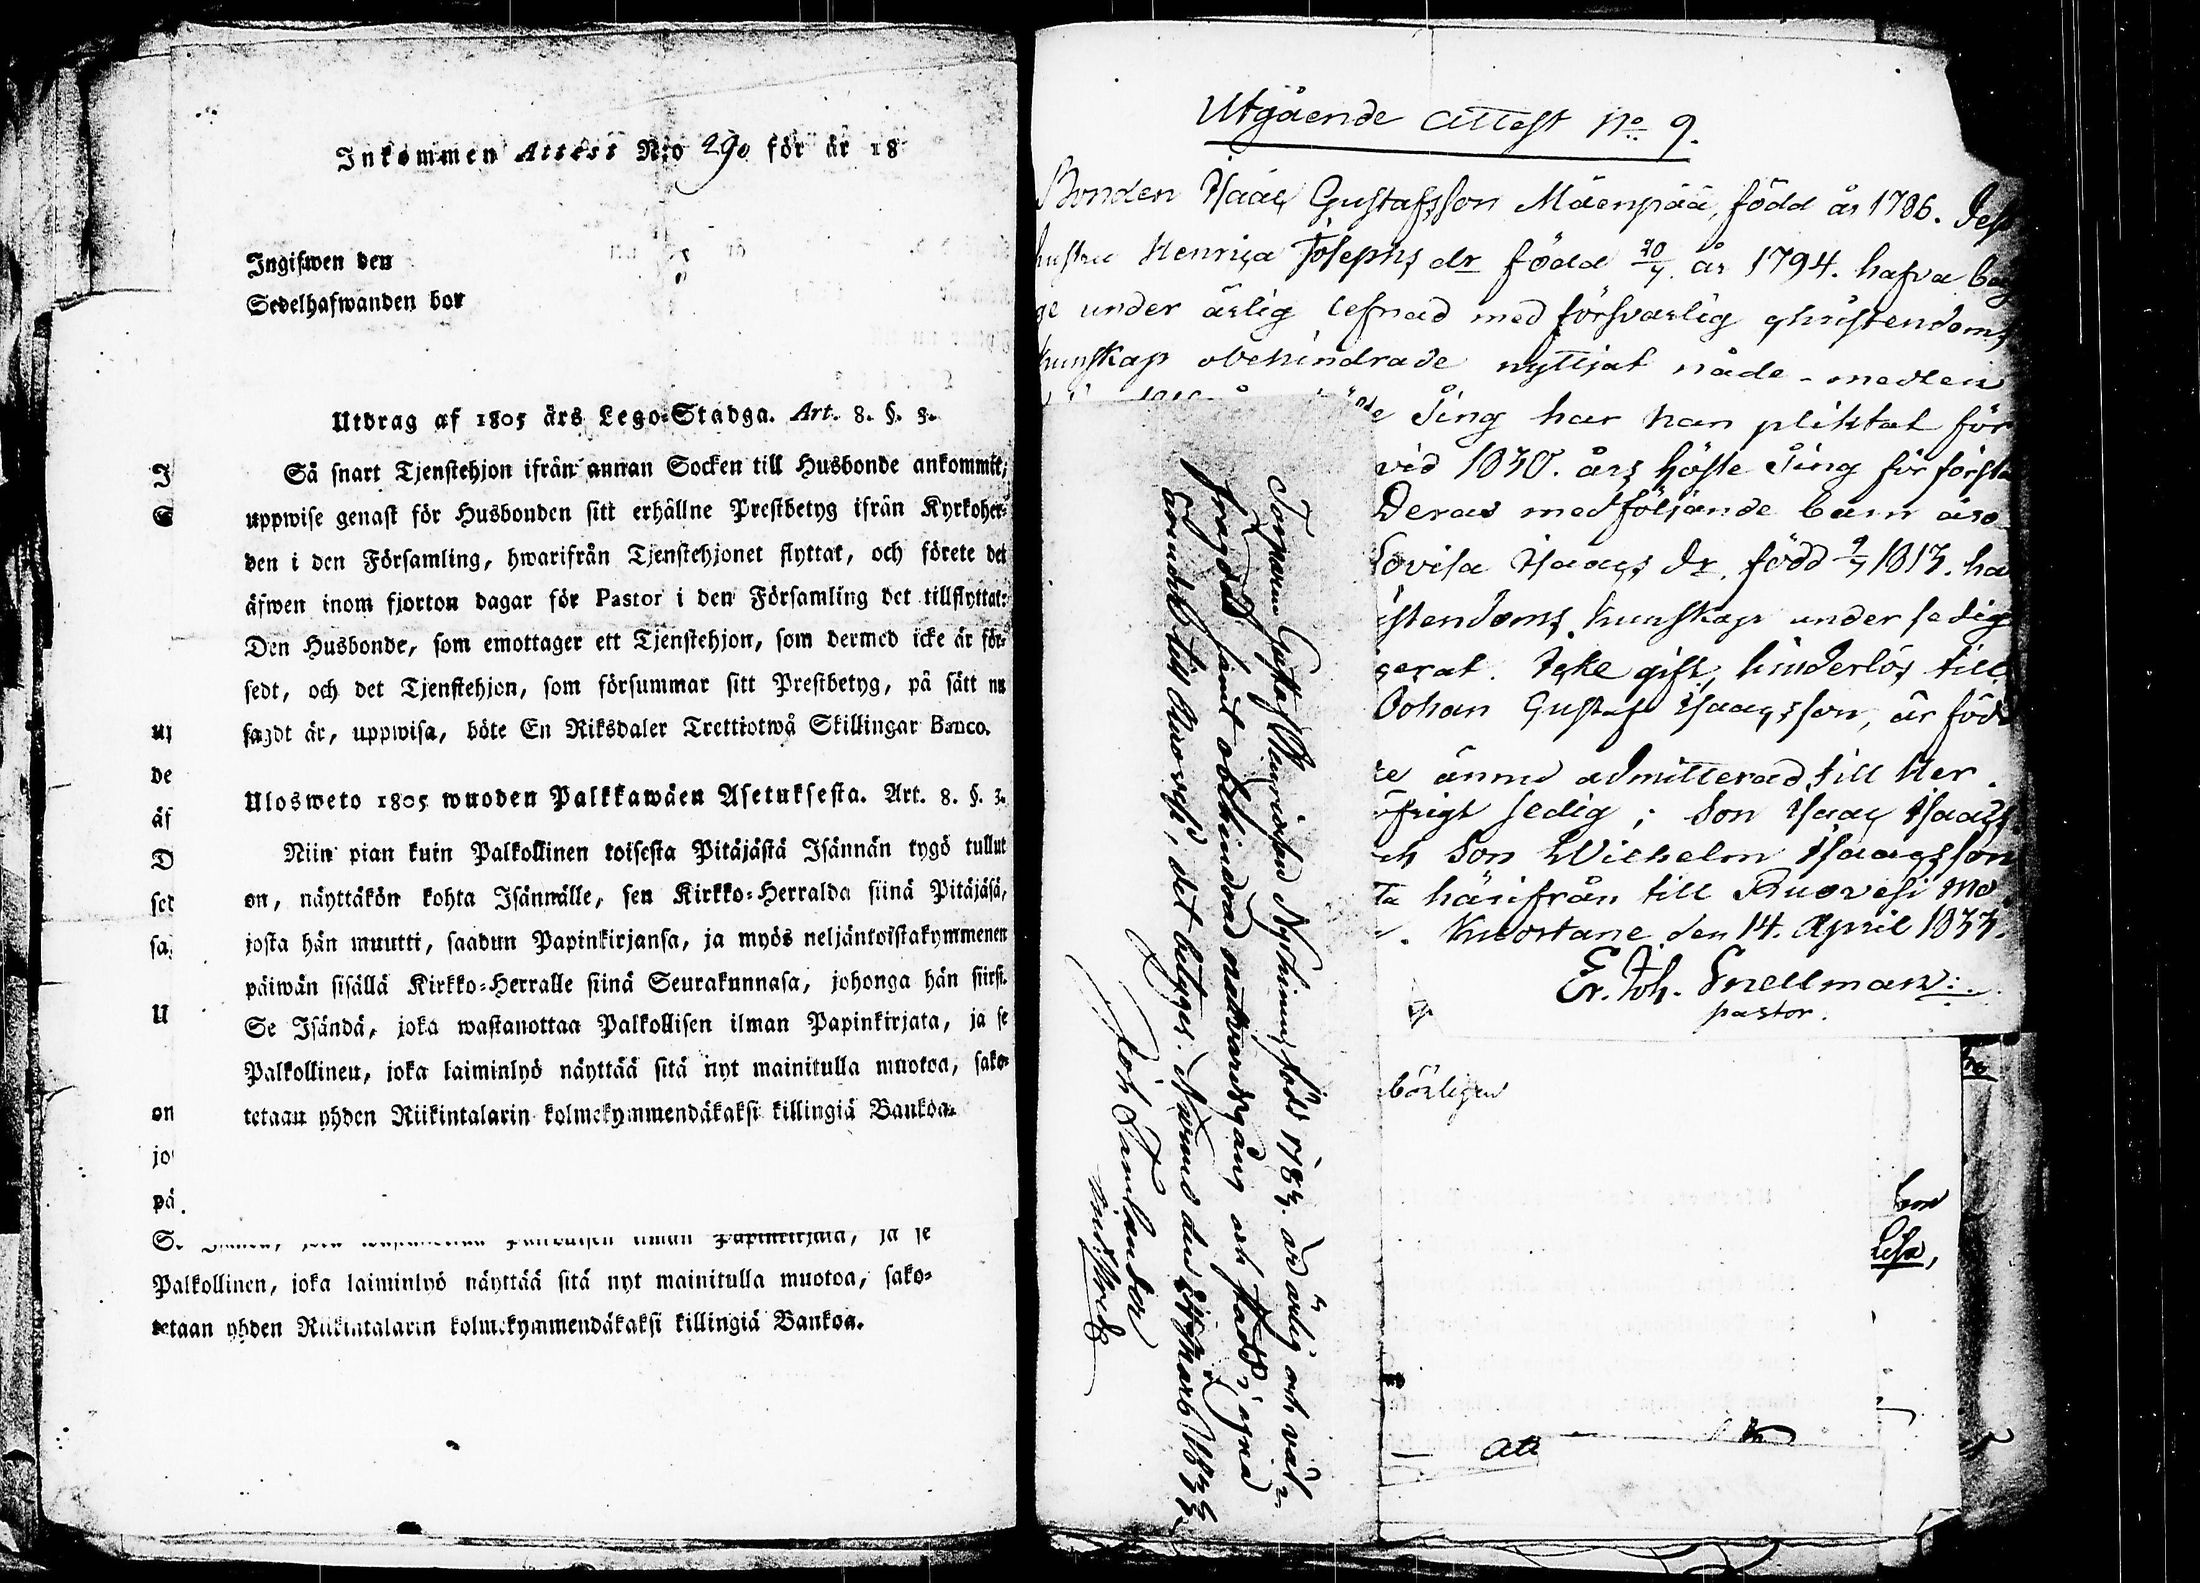 Inkommen Attest N:o 290 för år 18
Ingifwen den
Sedelhafwanden bor
Utdrag af 1805 års Lego-Stadga. Art. 8. §. 3.
Så snart Tjenstehjon ifrån annan Socken till Husbonde ankommit,
uppwise genast för Husbonden sitt erhållne Prestbetyg ifrån Kyrkoher-
den i den Församling, hwarifrån Tjenstehjonet flyttat, och förete det
äfwen inom fjorton dagar för Pastor i den Församling det tillflyttat:
Den Husbonde, som emottager ett Tjenstehjon, som dermed icke är för-
sedt, och det Tjenstehjon, som försummar sitt Prestbetyg, på sätt nu
sagdt är, uppwisa, böte En Riksdaler Trettiotwå Skillingar Banco.
Ulosweto 1805 wuoden Palkkawäen Asetuksesta. Art. 8. §. 3.
Niin pian kuin Palkollinen toisesta Pitäjästä Isännän tygö tullut
on, näyttäkön kohta Isännälle, sen Kirkko-Herralda siinä Pitäjäsä,
josta hän muutti, saadun Papinkirjansa, ja myös neljäntoistakymmenen
päiwän sisällä Kirkko-Herralle siinä Seurakunnasa, johonga hän siirst.
Se Isändä, joka wastanottaa Palkollisen ilman Papinkirjata, ja se
Palkollinen, joka laiminlyö näyttää sitä nyt mainitulla muotoa, sako-
tetaan yhden Riikintalarin kolmekymmendäkaksi killingiä Bankoa.
I
S
up
de
äf
D
sed
sa
U
on
jo
pä
Se Papinkirjata, ja se
Palkollinen, joka laiminlyö näyttää sitä nyt mainitulla muotoa, sako-
tetaan yhden Riikintalarin kolmekymmendäkaksi killingiä Bankoa.
Utgående Attest No 9.
Bonden Isaac Gustafsson Mäenpää, född år 1786. Dess
hustru Henrica Josephs dr född 20/7 år 1794. hafva båg
ge under ärlig lefnad med försvarlig christendoms
kunskap obehindrade nyttjat nåde-medlen
Ting har han pliktat för
vid 1830. års höste Ting för första
Deras medföljande barn äro
Lovisa Isaacs dr. född 1813. ha
istendoms kunskap under ledig
gerat. Icke gift, hinderlös till
Johan Gustaf Isaacsson, är född
re ännu admitterad till Her
öfrigt ledig; Son Isaac Isaacs
ch Son Wilhelm Isaacsson
ta härifrån till Ruovesi Mo
Kuortane den 14. April 1833.
Er. Joh. Snellman
pastor.
Torparen Gustaf Nyhinen, född 1783. är ärlig och väl
frägdad samt obehindrad nattvardsgång och stadd i egna
ärender till Ruovesi, det betyger. Närmo den 24 Mars 1833
Joh. Tamlander
börligen
Lesa,
att